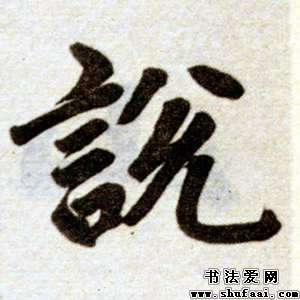 說
书法爱网
www.shufaai.com